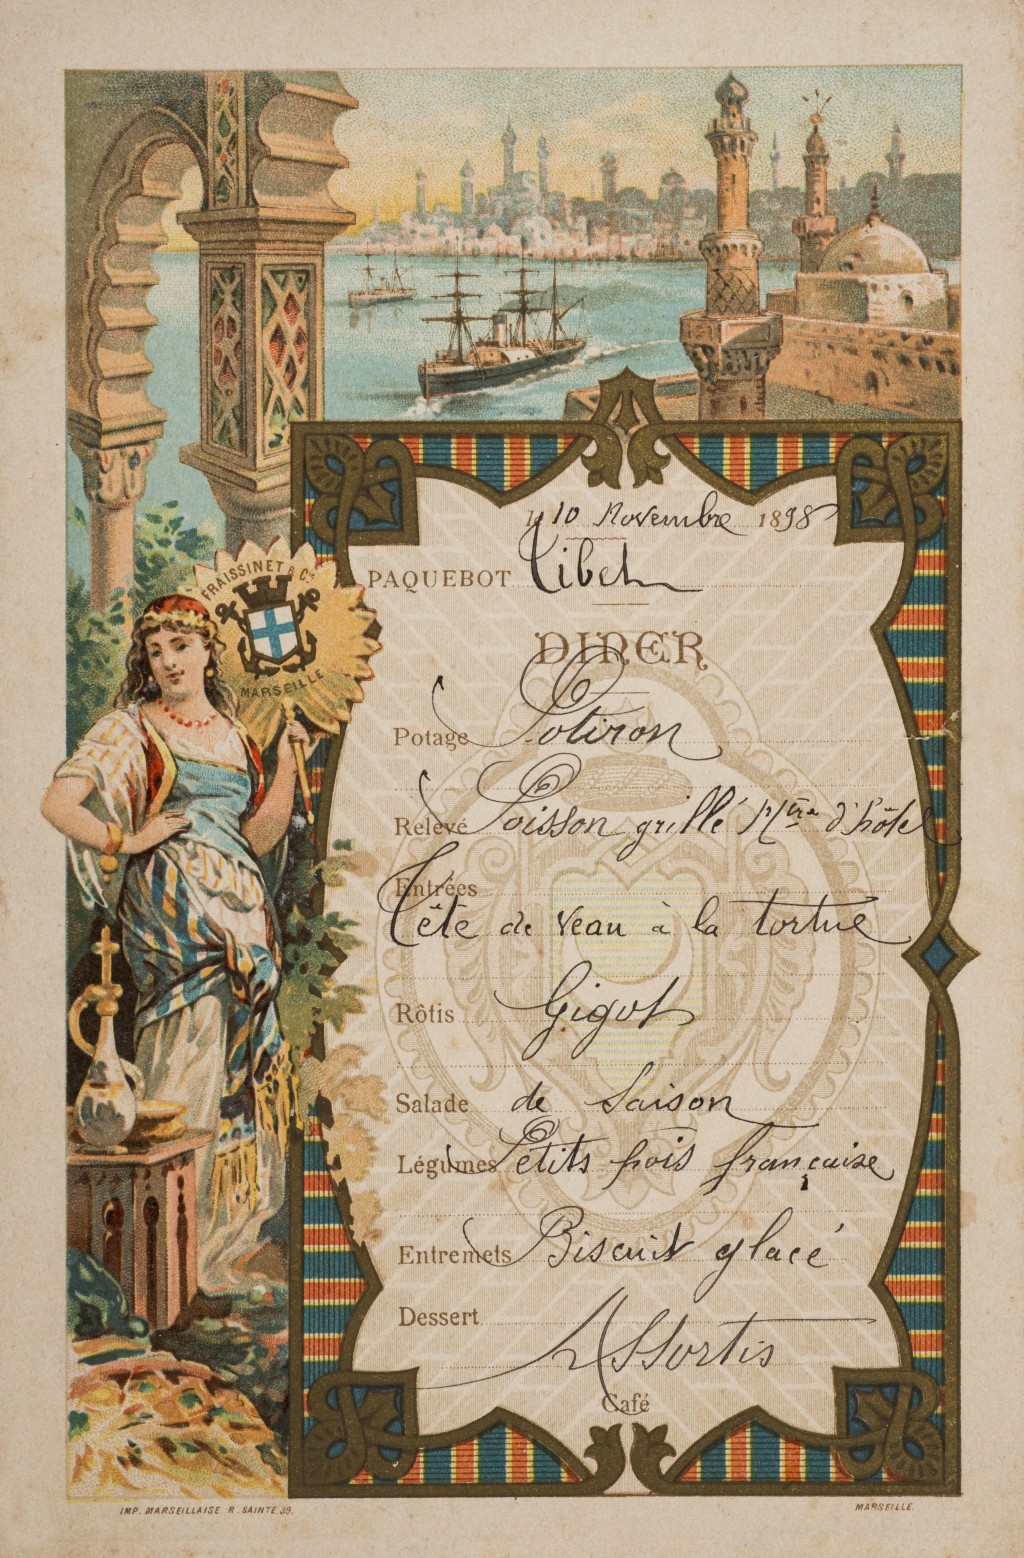 le 10 Novembre 1898
PAQUEBOT Tibet
FRAISSINET & Cie
MARSEILLE
DINER
Potage Potiron
Relevé Poisson grillé Mtre d'hôtel
Entrées
Tête de veau à la tortue
Rôtis Gigot
Salade de Saison
Légumes Petits pois française
Entremets Biscuit glacé
Dessert
Assortis
Café
IMP. MARSEILLAISE R. SAINTE, 39.
MARSEILLE.